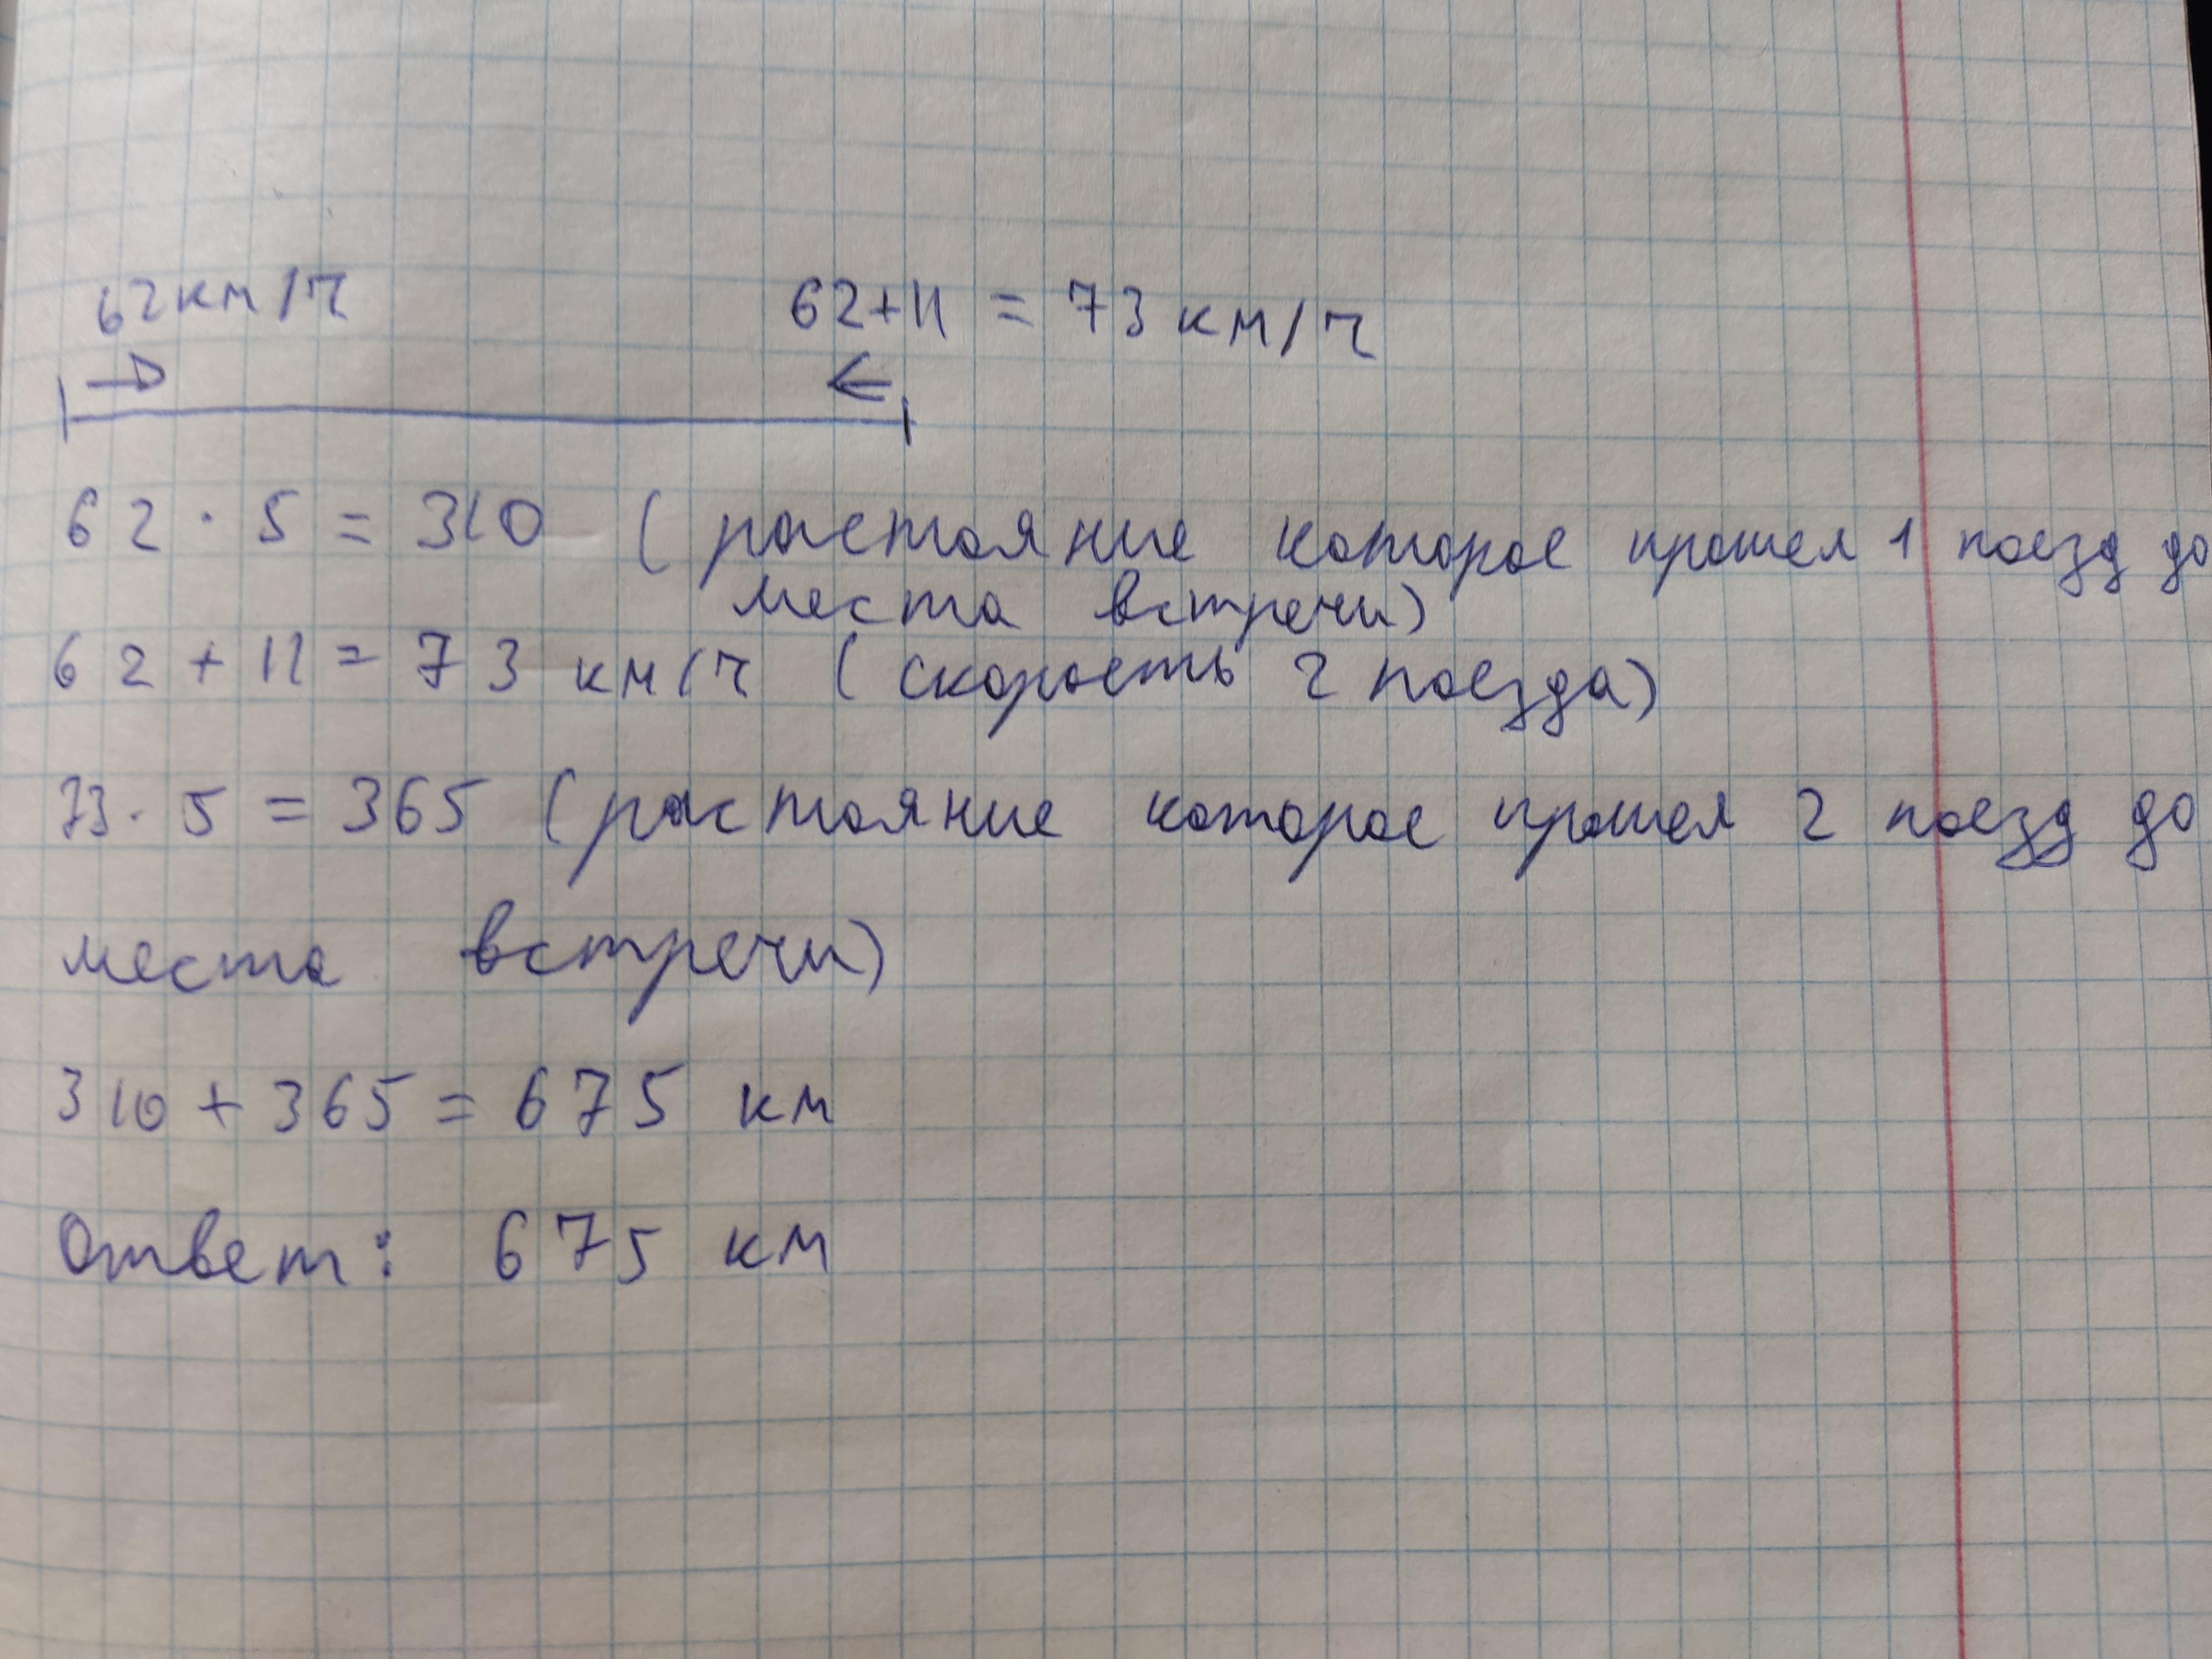 62 км/ч 62+11 = 73 км/ч
62 · 5 = 310 (растояние которое прошел 1 поезд до
места встречи)
62 + 11 = 73 км/ч (скорость 2 поезда)
73 · 5 = 365 (растояние которое прошел 2 поезд до
места встречи)
310 + 365 = 675 км
Ответ: 675 км